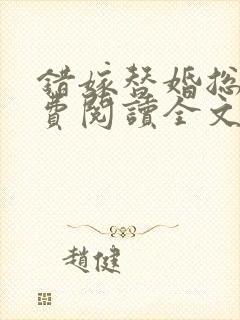 錯嫁替婚總
費閱讀全文
趙健